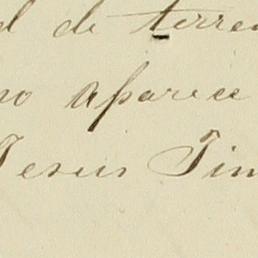 d de terren
no aparece
Jesus Jim